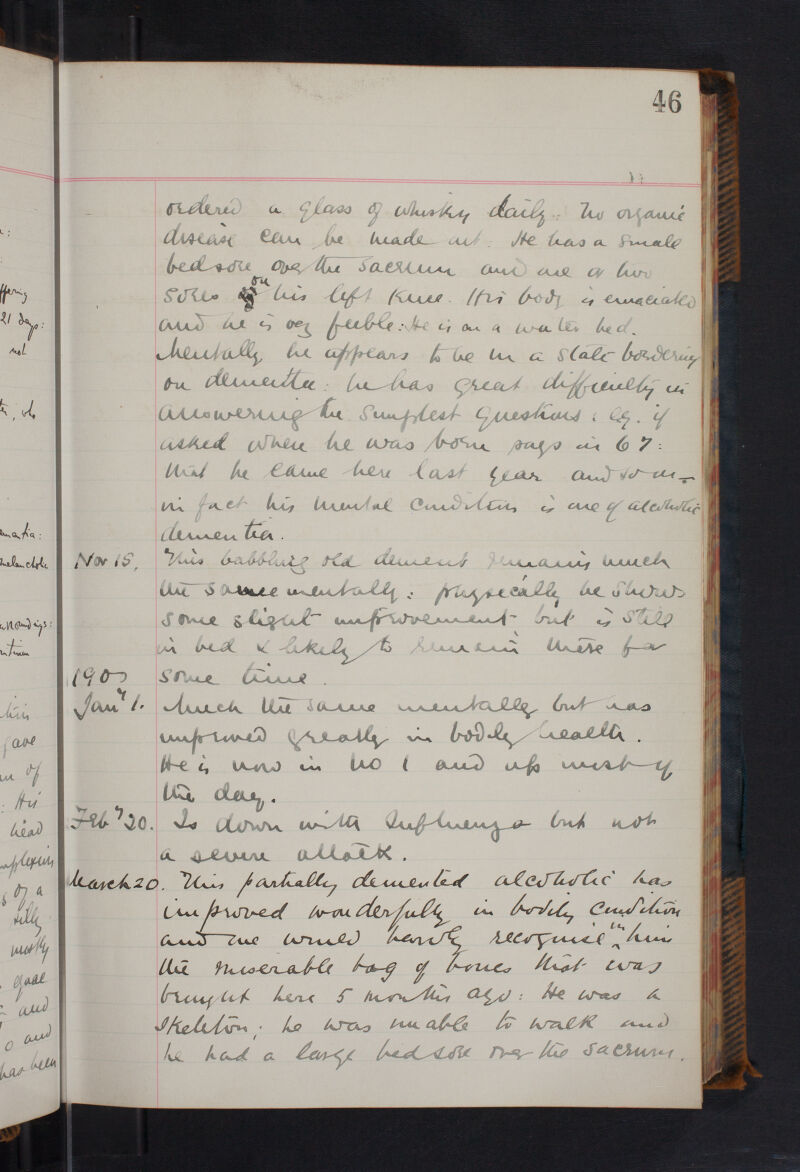 46
ordered a glass of whisky daily: No organic
disease can be made out: He has a small
bedsore over the sacrum and one or two
sores on his left knee. His body is emaciated
and he is very feeble: He is on a water bed.
Mentally he appears to be in a state bordering
on dementia: he has great difficulty in
answering the simplest questions: eg. if
asked when he was born says in 67:
that he came here last year and so on-
in fact his mental condition is one of alcoholic
dementia.
Nov 15. This babbling old dement remains much
the same mentally: physically he shows
some slight improvement but is still
in bed & likely to remain there for
190 some time.
Jany 1. Much the same mentally but has
improved greatly in bodily health.
He is now in No 1 and up most of
the day.
Feby 20. Is down with Influenza but not
a severe attack.
March 20. This partially demented alcoholic has
improved wonderfully in bodily condition
and one would hardly recognise in him
the miserable bag of bones that was
brought here 5 months ago: He was a
skeleton; he was unable to walk and
he had a large bedsore over the sacrum.
ffering
21 days:
not
melancholic
gave
of
: His
head
of a
silly
mostly
and
and
has been